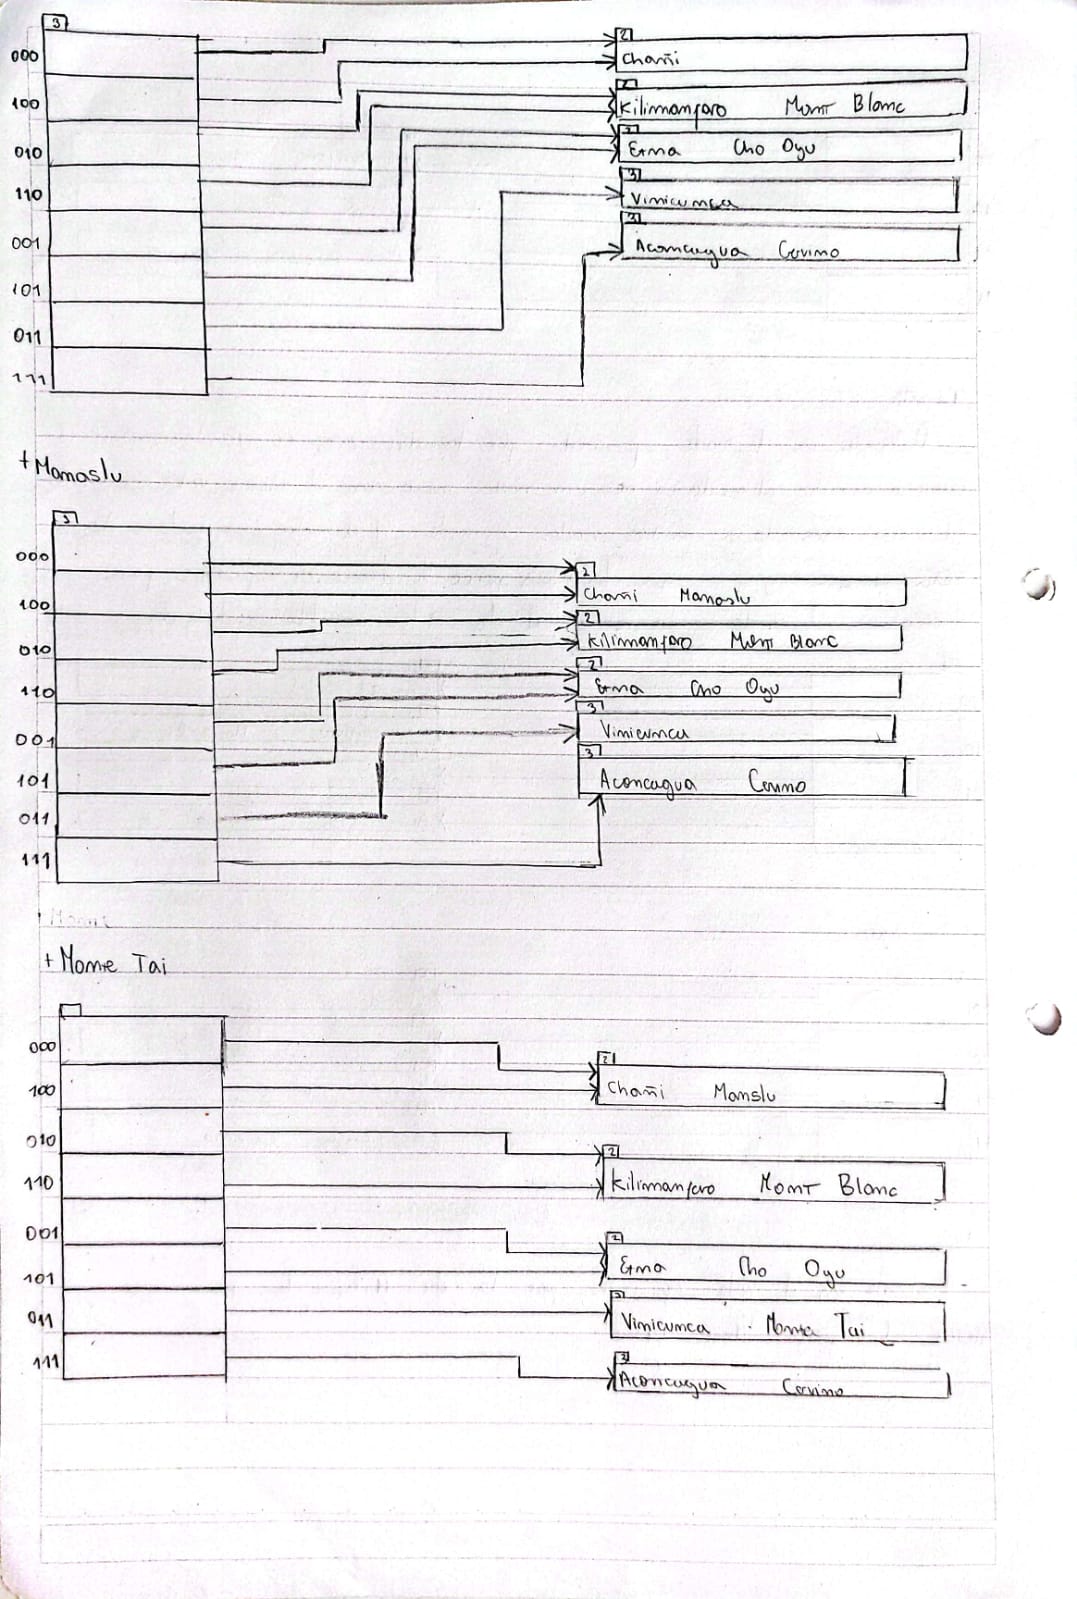 3
000
100
010
110
001
101
011
111
2
Chañi
2
Kilimanjaro Mont Blanc
2
Etna Cho Oyu
3
Vinicunca
3
Aconcagua Cervino
+ Manaslu
3
000
100
010
110
001
101
011
111
2
Chañi Manaslu
2
Kilimanjaro Mont Blanc
2
Etna Cho Oyu
3
Vinicunca
3
Aconcagua Cervino
+ Monte Tai
000
100
010
110
001
101
011
111
2
Chañi Manslu
2
Kilimanjaro Mont Blanc
2
Etna Cho Oyu
3
Vinicunca Monte Tai
3
Aconcagua Cervino